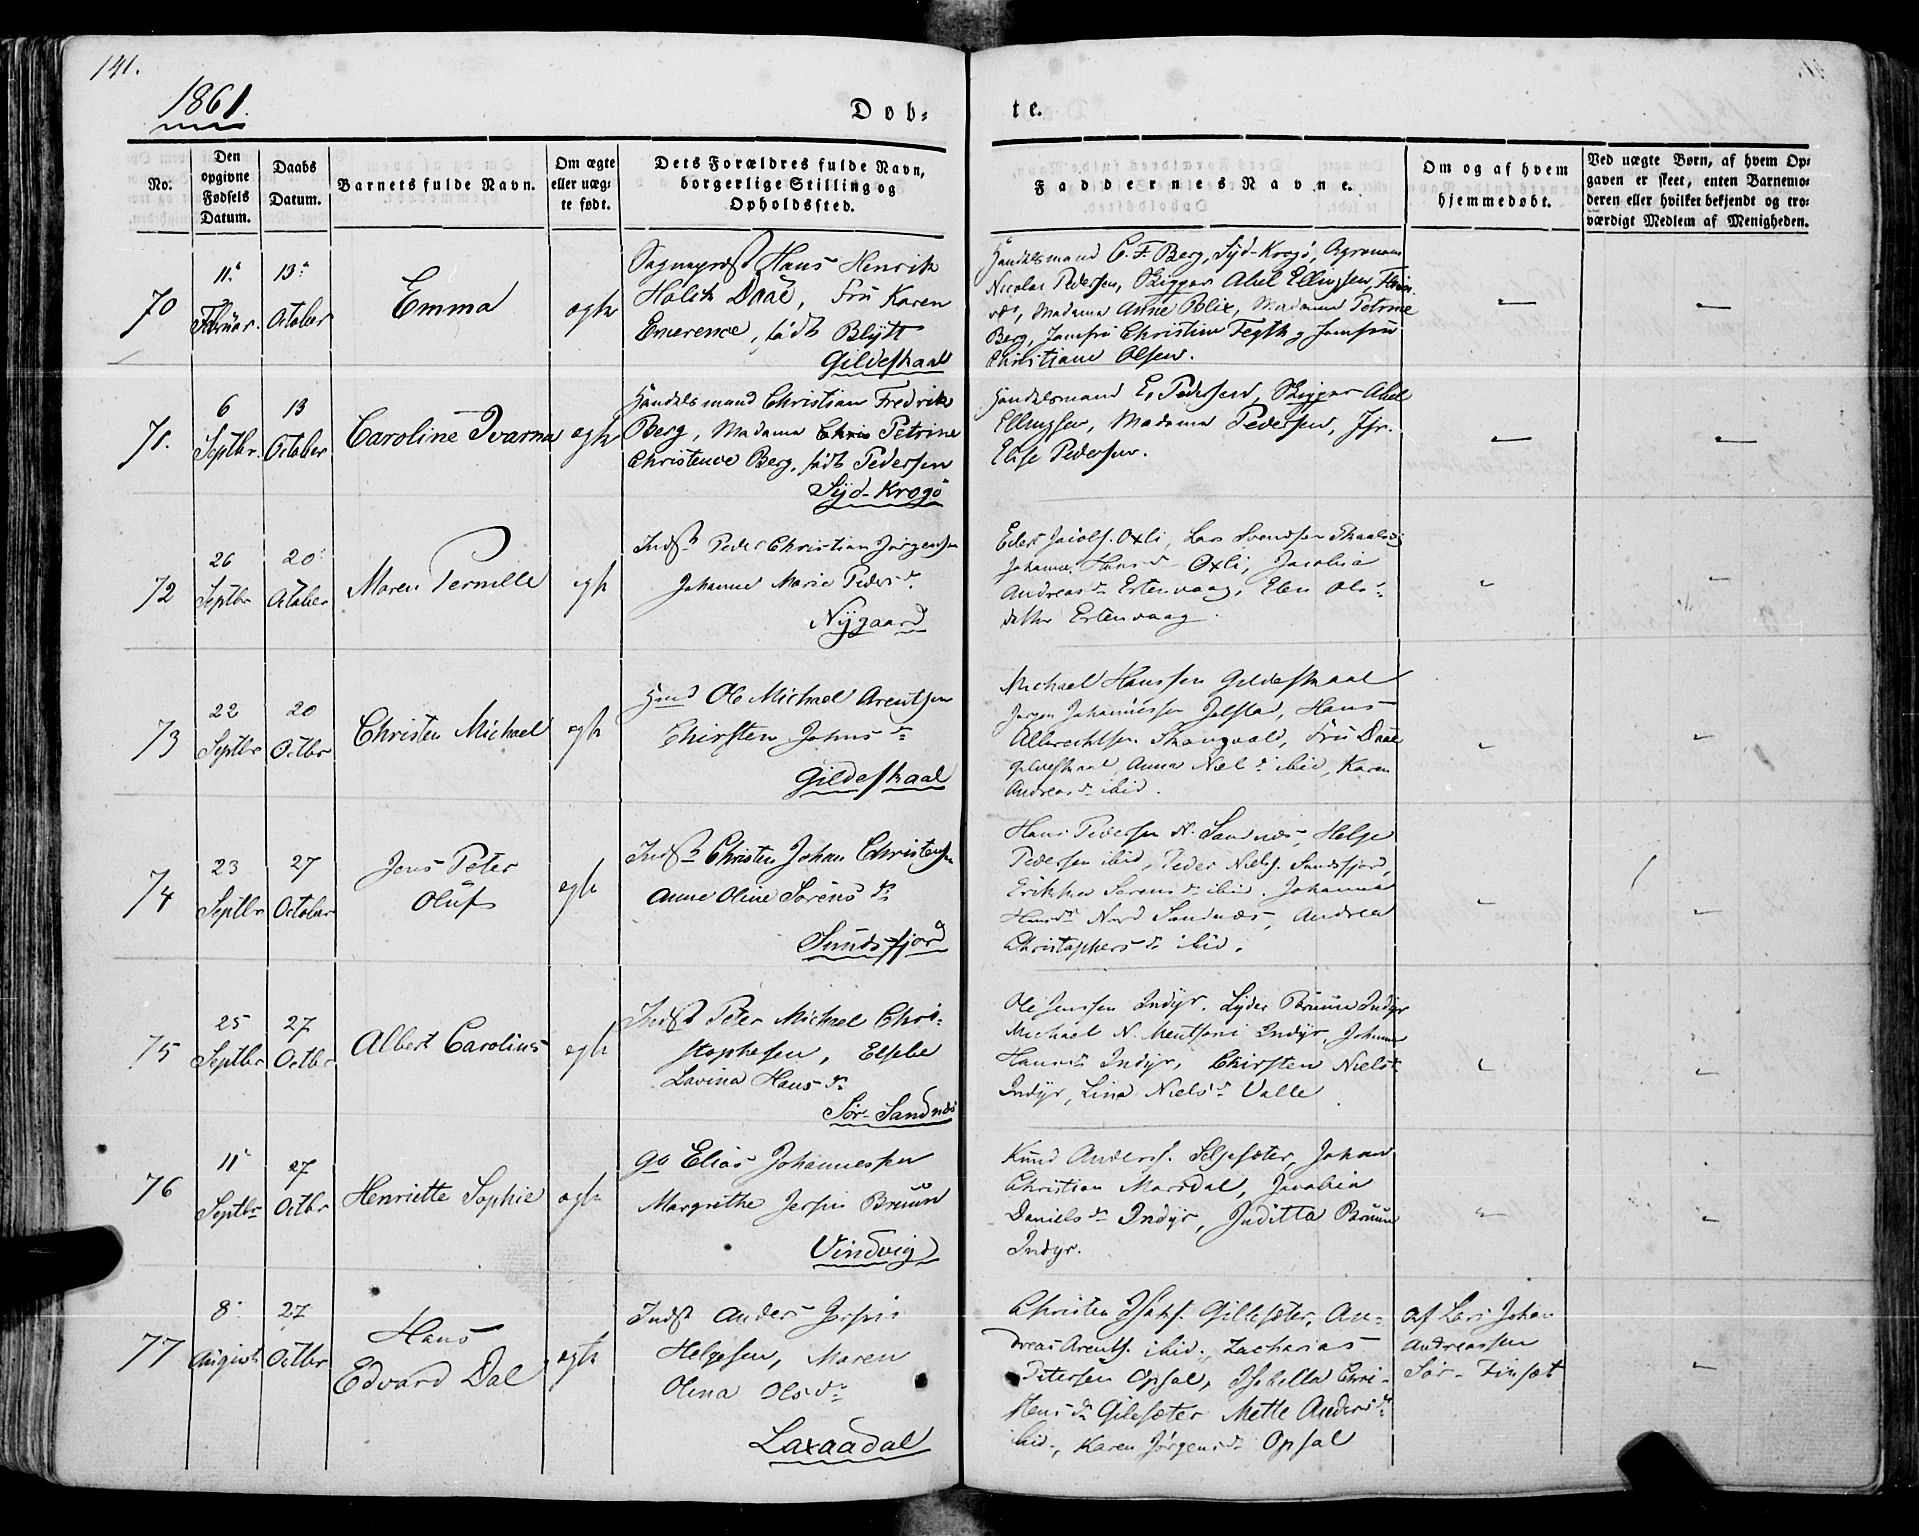 141.
1861.
Døb-
te.
No.
Den
opgivne
Fødsels
Datum.
Daabs
Datum.
Barnets fulde Navn.
Om ægte
eller uæg-
te født.
Dets Forældres fulde Navn,
borgerlige Stilling og
Opholdssted.
Faddernes Navne.
Om og af hvem
hjemmedøbt.
Ved uægte Børn, af hvem Op-
gaven er skeet, enten Barnemo-
deren eller hvilket bekjendt og tro-
værdigt Medlem af Menigheden.
70
11
Februar.
13
October
Emma
egte
Sognepræst Hans Henrik
Holck Daae, Fru Karen
Emerence, født Blÿtt
Gildeskaal
Handelsmand C. F. Berg, Sÿd-Krogø, Agronom
Nicolai Pedersen, Skipper Abel Ellingsen,
Madame Anne Blix, Madame Petrine
Berg, Jomfru Christine Fegth og Jomfru
Christiane Olsen.
71.
6
Septbr.
13
October
Caroline Ivarna
egte
Handelsmand Christian Fredrik
Berg, Madame Chris Petrine
Christence Berg, født Pedersen
Sÿd-Krogø
Handelsmand E. Pedersen, Skipper Abel
Ellingsen, Madame Pedersen, Jfr.
Elise Pedersen.
72
26
Septbr
20
October
Maren Pernille
egte
Indst Peder Christian Jørgensen
Johanna Marie Peders dr.
Nÿgaard
Edert Jacobs. Oxli, Lars Svendsen
Johanna Hans dr Oxli, Jacobia
Andreas dr Ertenvaag, Elen Ols-
datter Ertenvaag.
73
22
Septbr
20
Octbr
Christen Michael
egte
Hmd Ole Michael Arentsen
Chirsten Johns dr
Gildeskaal
Michael Hanssen Gildeskaal
Jørgen Johannessen Jelstad, Hans
Albrechtsen Skongvald, Fru Daae
Gildeskaal, Anna Niels dr ibid, Karen
Andreas dr ibid.
74
23
Septbr
27
October
Jens Peter
Olüf
egte
Indst Christen Johan Christensen
Anne Oline Sørens dr
Sundsfjord
Hans Pedersen N. Sandnæs, Helge
Pedersen ibid, Peder Niels. Sundsfjord,
Erikka Sørens dr ibid. Johanna
Hans dr Nord Sandnæs, Andrea
Christophers dr ibid.
75
25
Septbr
27
Octbr
Albert Carolius
egte
Indst Peter Michael Chri-
stophesen, Elsebe
Lovina Hans dr
Sør-Sandnæs
Ole Jenssen Indÿr, Lÿder Bruun Indÿr
Michael N. Mentzoni Indÿr, Johanna
Hans dr Indÿr, Chirsten Niels dr
Indÿr, Lina Niels dr Valle
76
11
Septbr
27
Octbr
Henriette Sophie
egte
Go Elias Johannessen
Margrethe Jespr Bruun
Vindvig
Knud Anders. Seljesæter, Johan
Christian Marsdal, Jacobia
Daniels dr Indÿr, Juditta Bruun
Indÿr.
77
8
August
27
Octbr
Hans
Edvard Dal
egte
Indst Anders Jespr
Helgesen, Maren
Olena Ols dr
Laxaadal
Christen Isaks. Gillesæter, An-
dreas Arents. ibid., Zacharias
Petersen Opsal, Isabella Chri-
stens dr Gilesæter Mette Anders dr
ibid., Karen Jørgens dr Opsal
af Lars Johan
Andreassen
Sør-Finset